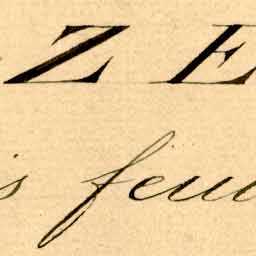 ZE
s feu